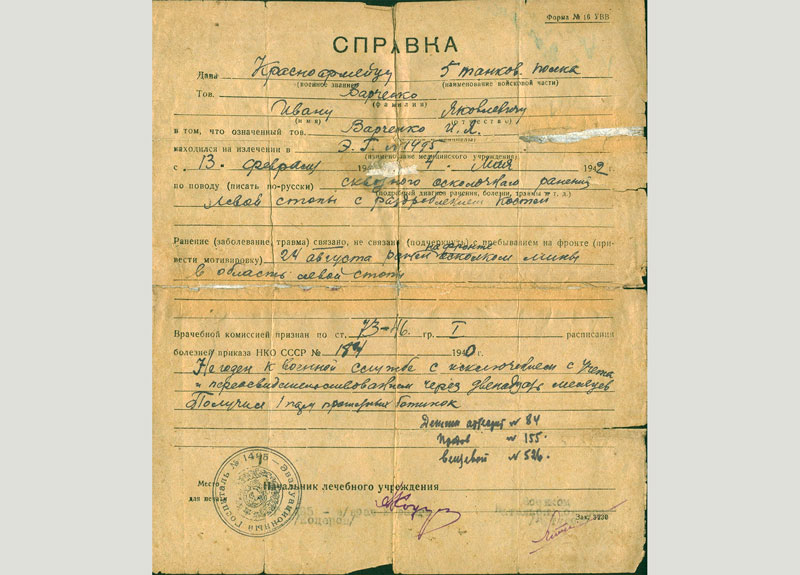 Форма № 16 УВВ
СПРАВКА
Дана Красноармейцу 5 танков. полка
(военное звание) (наименование войсковой части)
Тов. Варченко
(фамилия)
Ивану Яковлевичу
(имя) (отчество)
в том, что означенный тов. Варченко И. Я.
находился на излечении в Э. Г. № 1495
(наименование медицинского учреждения)
с 13. февраля 19 4. мая 1942 г.
по поводу (писать по-русски) сквозного осколочного ранения
(подробный диагноз ранения, болезни, травмы и т. д.)
левой стопы с раздроблением костей
Ранение (заболевание, травма) связано, не связано (подчеркнуть) с пребыванием на фронте (при-
вести мотивировку) 24 августа ранен на фронте осколком мины
в область левой стопы
Врачебной комиссией признан по ст. 73-46. гр. I расписания
болезней приказа НКО СССР № 184 1940 г.
Не годен к военной службе с исключением с учета
и переосвидетельствованием через двенадцать месяцев
Получил 1 пару ботинок
аттестат № 84
№ 155.
вещевой № 526.
Место
для печати
Начальник лечебного учреждения
Эвакуационный Госпиталь № 1495
Зак. 3930